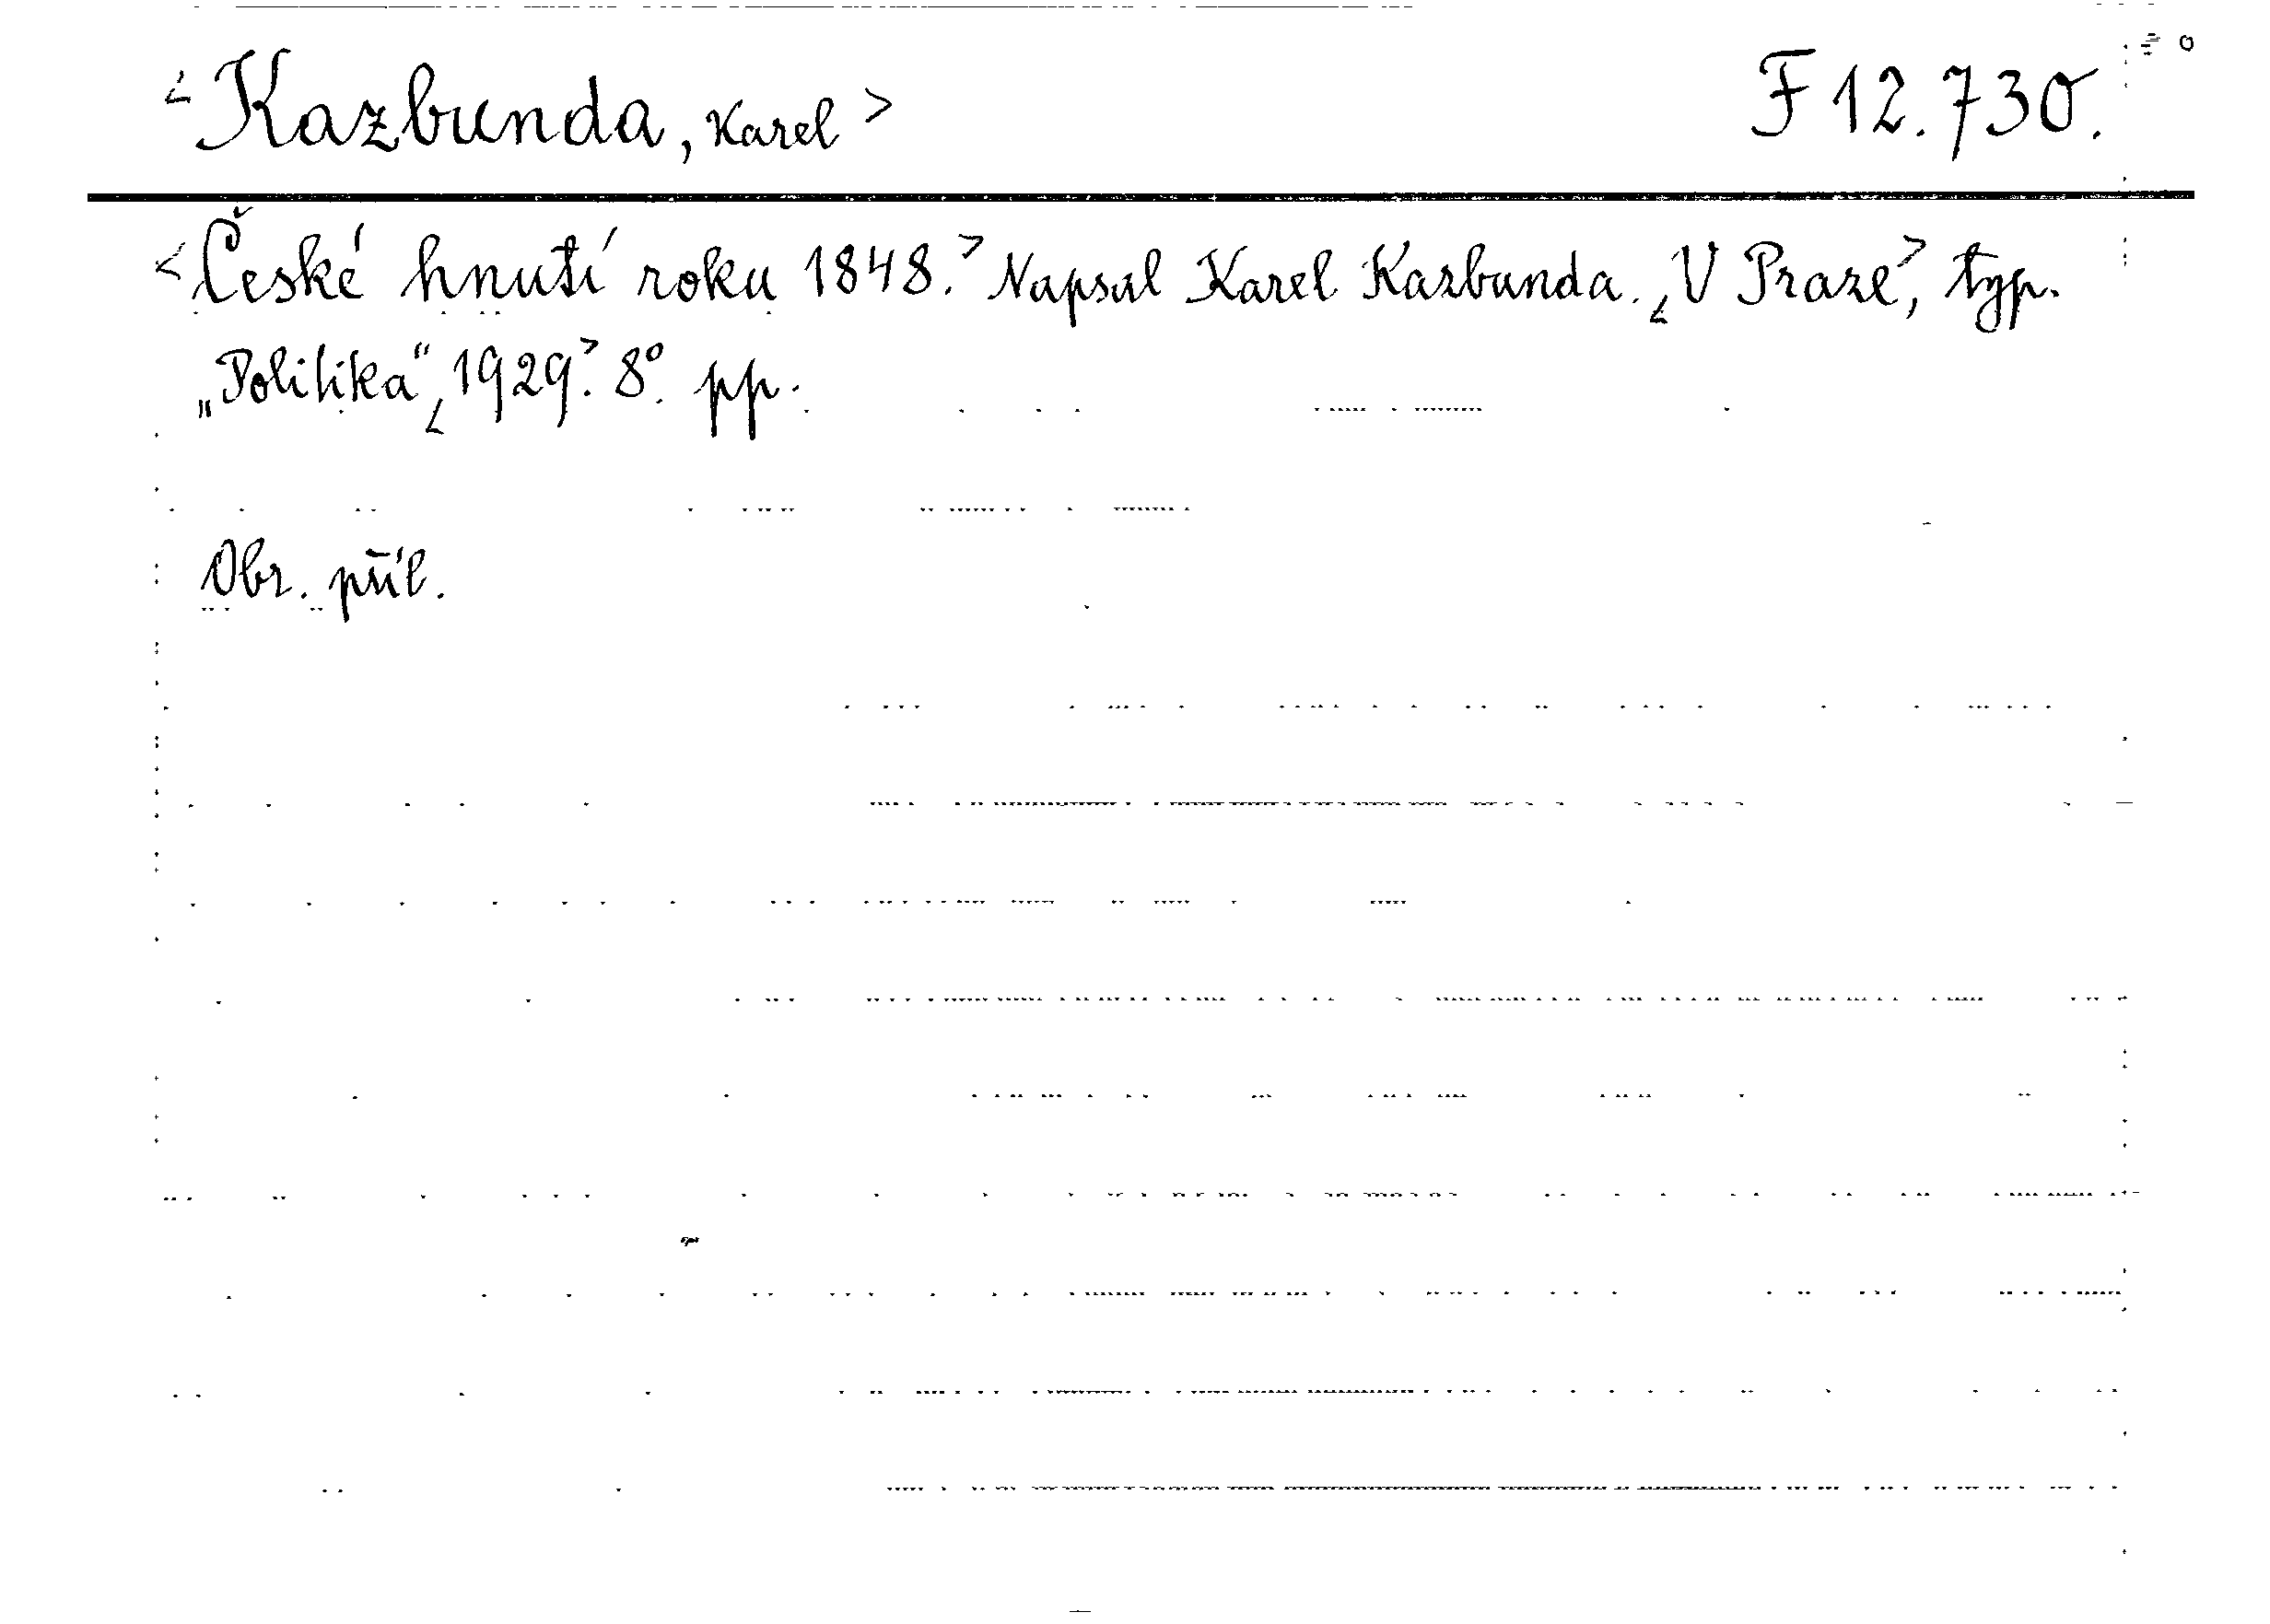 <Kazbunda, Karel> F 12.730.
<České hnutí roku 1848.> Napsal Karel Kazbunda. <V Praze>, typ.
„Politika“, <1929.> 8°. pp.
Obr. příl.